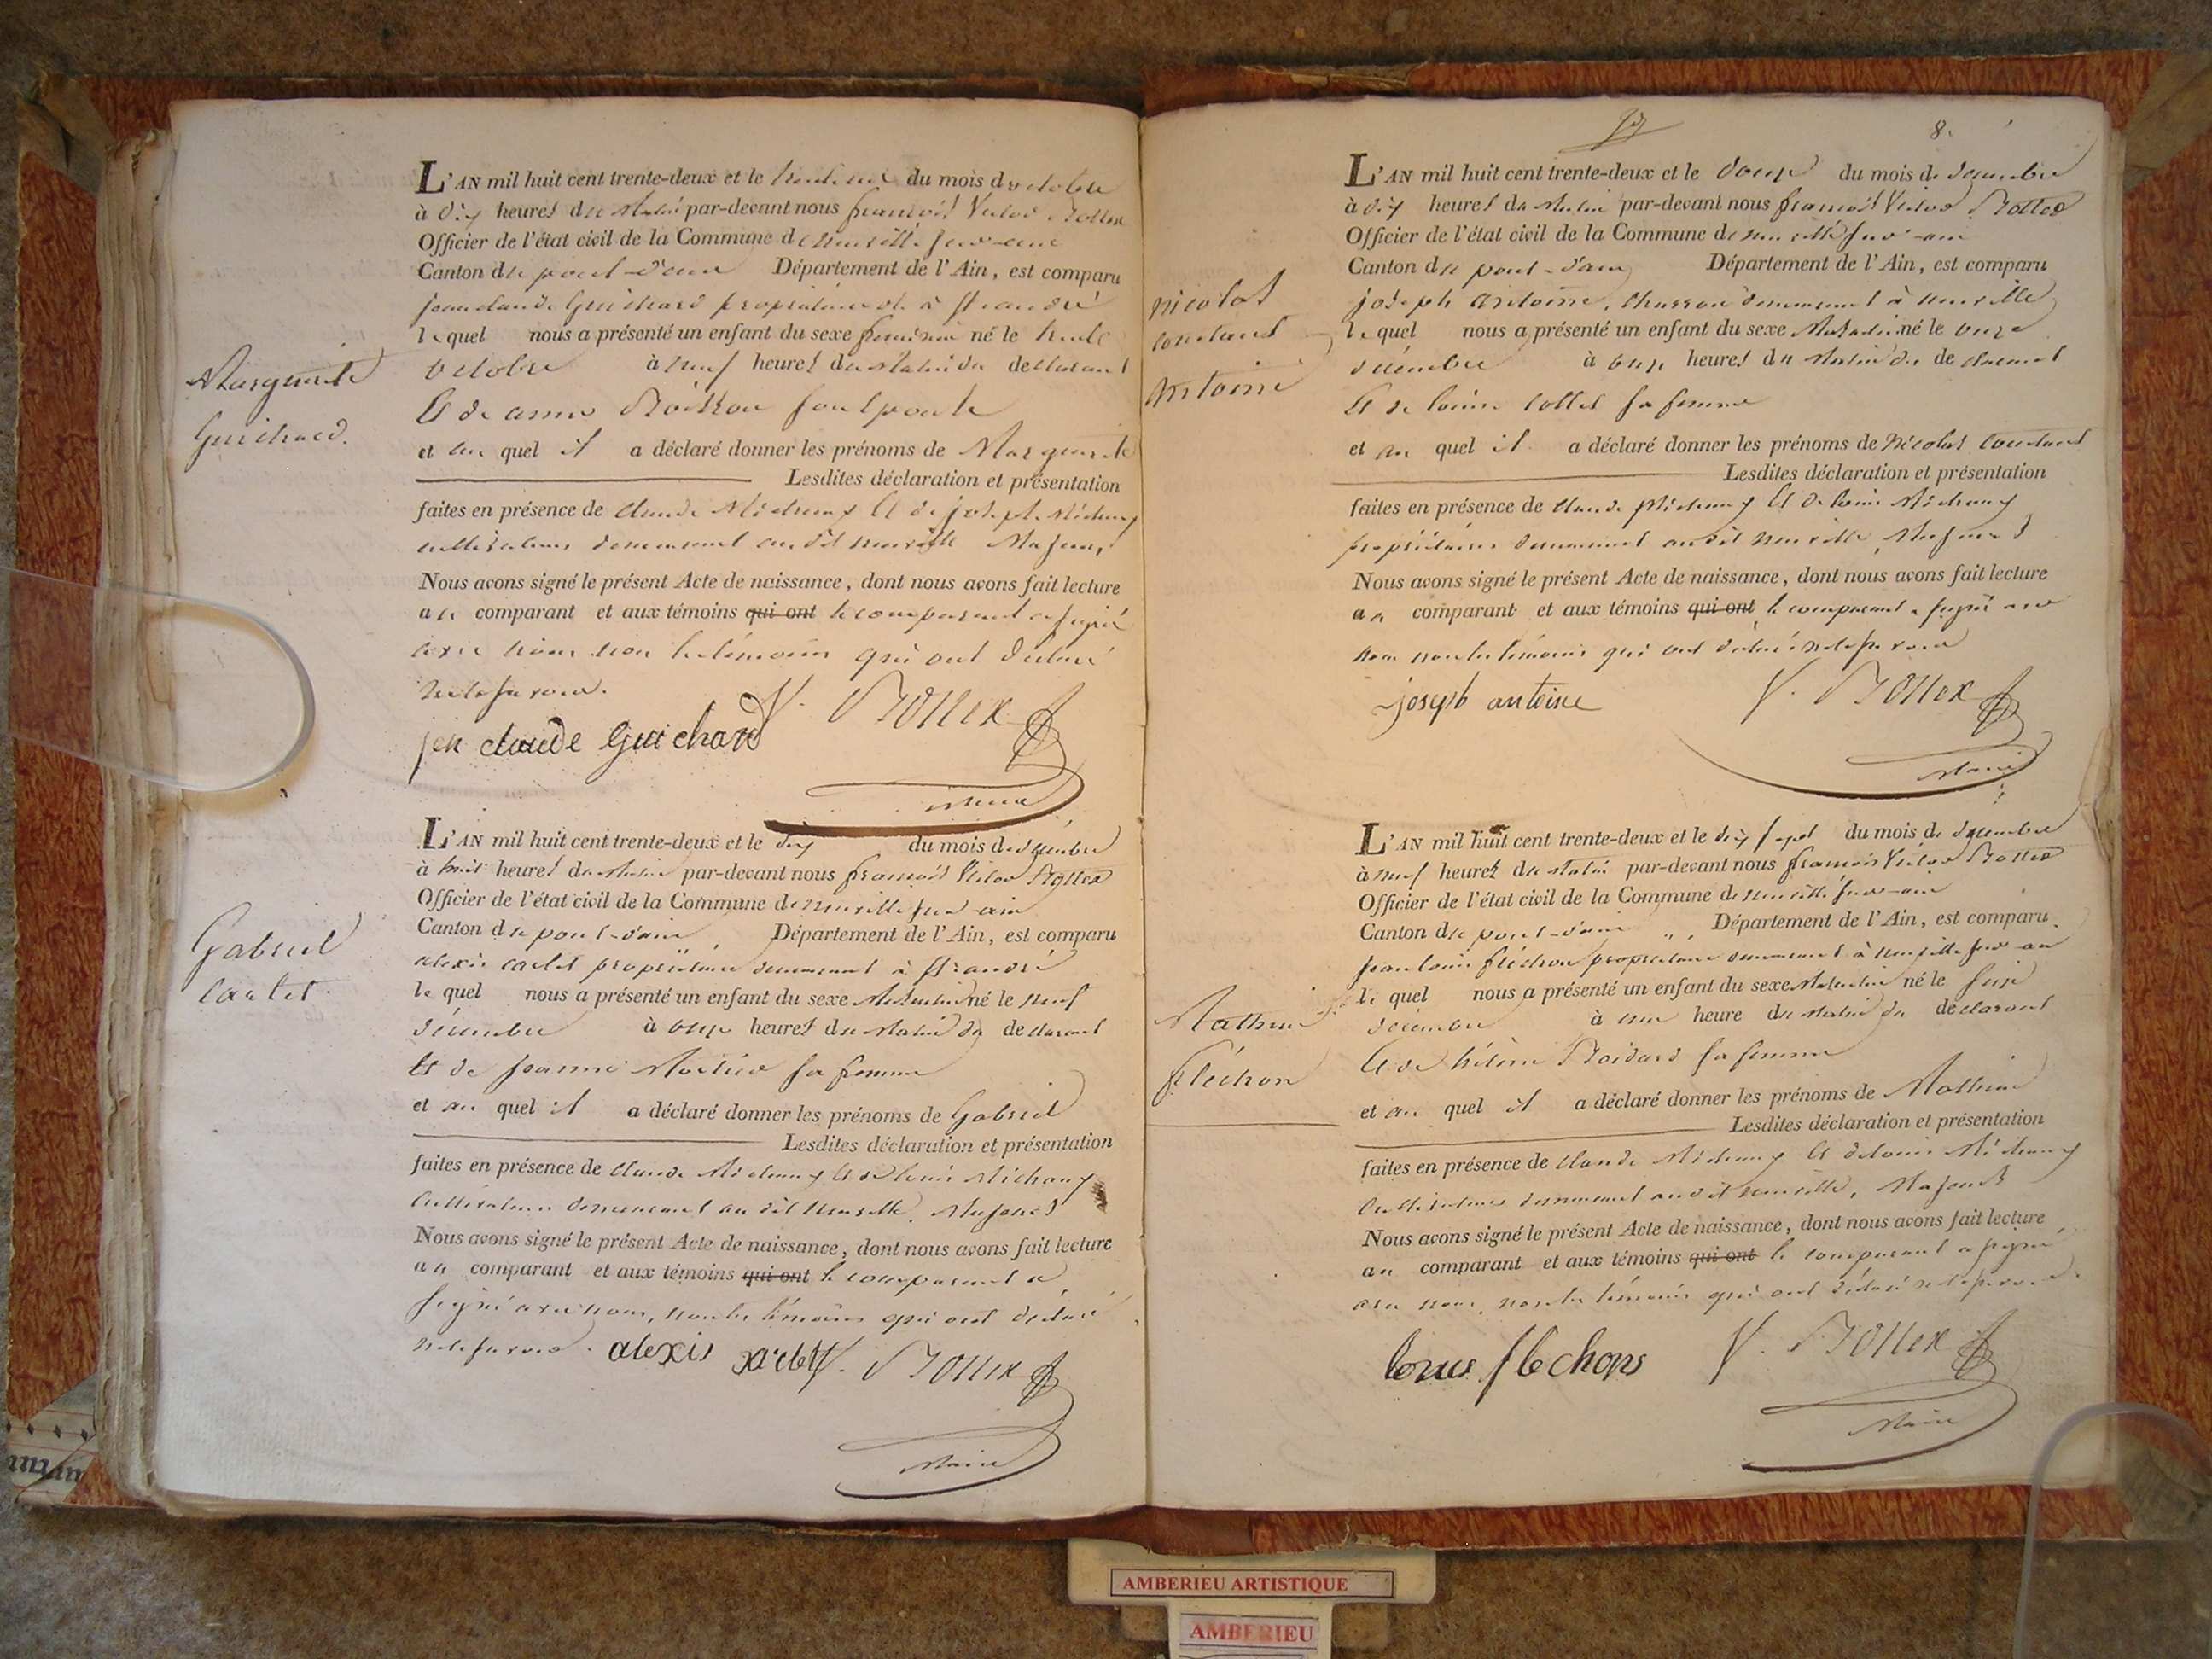 Marguerite
Guichard.
L'AN mil huit cent trente-deux et le trente un du mois d'octobre
à dix heures du Matin par-devant nous françois Victor Bottex
Officier de l'état civil de la Commune de neuville sur-ain
Canton de pont-d'ain Département de l'Ain, est comparu
jean claude Guichard propriétaire à St andré
lequel nous a présenté un enfant du sexe féminin né le trente
octobre à neuf heures du Matin du declarant
Et de anne
et au quel il a déclaré donner les prénoms de Marguerite
Lesdites déclaration et présentation
faites en présence de Claude Michoux Et de joseph Michoux
cultivateurs demeurant audit neuville Majeurs
Nous avons signé le présent Acte de naissance, dont nous avons fait lecture
au comparant et aux témoins qui ont le comparant a signé
avec nous non les témoins qui ont déclaré
ne le savoir.
jen claude Guichard V. Bottex
Maire
Gabriel
Cartet.
L'AN mil huit cent trente-deux et le dix du mois de décembre
à huit heures du Matin par-devant nous françois Victor Bottex
Officier de l'état civil de la Commune de neuville sur-ain
Canton de pont-d'ain Département de l'Ain, est comparu
alexis cartet propriétaire demeurant à St andré
lequel nous a présenté un enfant du sexe Masculin né le neuf
décembre à onze heures du Matin du declarant
Et de jeanne sa femme
et au quel il a déclaré donner les prénoms de Gabriel
Lesdites déclaration et présentation
faites en présence de Claude Michoux Et de louis Michoux
Cultivateurs demeurant au dit neuville, Majeurs
Nous avons signé le présent Acte de naissance, dont nous avons fait lecture
au comparant et aux témoins qui ont le comparant a
signé avec nous, non les témoins qui ont déclaré
ne le savoir. alexis V. Bottex
Maire
8.
nicolas
constant
Antoine
L'AN mil huit cent trente-deux et le douze du mois de décembre
à dix heures du Matin par-devant nous françois Victor Bottex
Officier de l'état civil de la Commune de neuville sur-ain
Canton de pont-d'ain Département de l'Ain, est comparu
joseph antoine, demeurant à neuville
lequel nous a présenté un enfant du sexe Masculin né le onze
décembre à onze heures du Matin du declarant
Et de louise collet sa femme
et au quel il a déclaré donner les prénoms de Nicolas Constant
Lesdites déclaration et présentation
faites en présence de Claude Michoux Et de louis Michoux
propriétaires demeurant audit neuville, Majeurs
Nous avons signé le présent Acte de naissance, dont nous avons fait lecture
au comparant et aux témoins qui ont le comparant a signé avec
nous non les témoins qui ont déclaré ne le savoir
joseph antoine V. Bottex
Maire
Mathieu
fléchon
L'AN mil huit cent trente-deux et le dix sept du mois de décembre
à neuf heures du Matin par-devant nous françois Victor Bottex
Officier de l'état civil de la Commune de neuville sur-ain
Canton de pont-d'ain Département de l'Ain, est comparu
jean louis fléchon propriétaire demeurant à neuville sur-ain
lequel nous a présenté un enfant du sexe Masculin né le seize
décembre à une heure du Matin du declarant
Et de hélène sa femme
et au quel il a déclaré donner les prénoms de Mathieu
Lesdites déclaration et présentation
faites en présence de Claude Michoux Et de louis Michoux
Cultivateurs demeurant audit neuville, Majeurs
Nous avons signé le présent Acte de naissance, dont nous avons fait lecture
au comparant et aux témoins qui ont le comparant a signé
avec nous, non les témoins qui ont déclaré ne le savoir.
louis flechons V. Bottex
Maire
AMBERIEU ARTISTIQUE
AMBERIEU